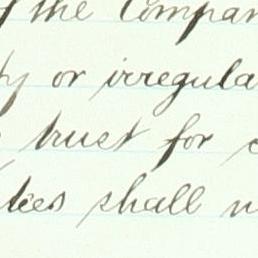 the Compan
or irregula
trust for
tees shall n